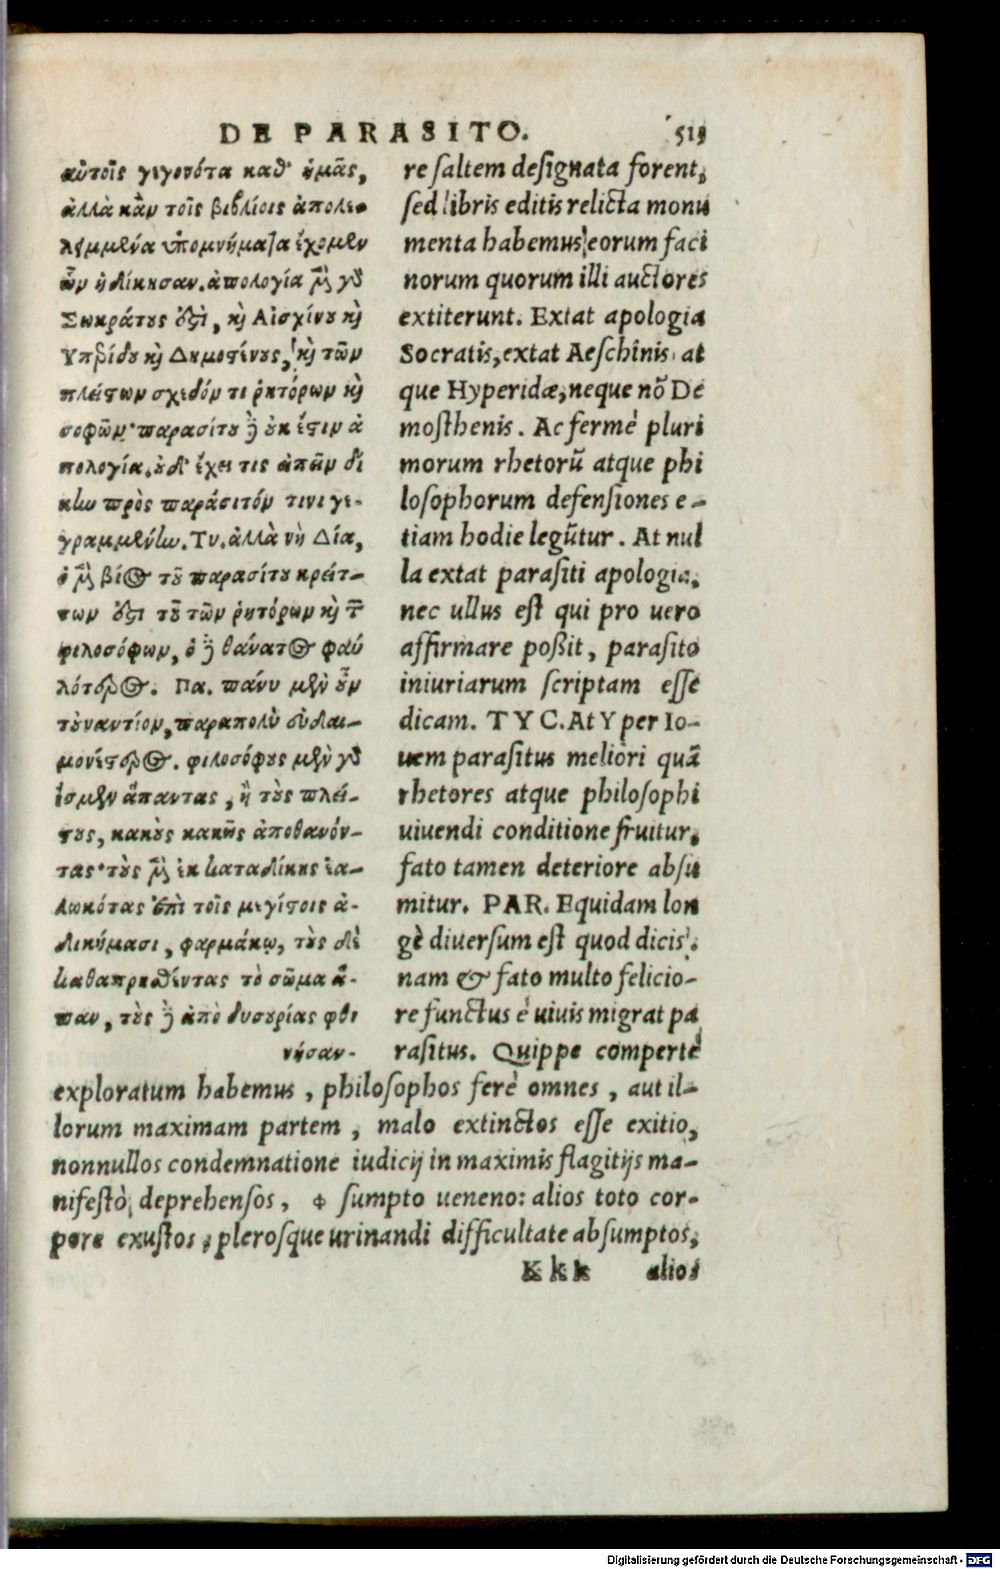 DE PARASITO. 513
αὐτοῖς γεγονότα καθ' ἡμᾶς,
ἀλλὰ κἂν τοῖς βιβλίοις ἀπολε-
λειμμένα ὑπομνήματα ἔχομεν
ὧν ἠδίκησαν. ἀπολογία μὲν γὰρ
Σωκράτους ἐστὶ, καὶ Αἰσχίνου καὶ
Υπερίδου καὶ Δημοσθένους, καὶ τῶν
πλείστων σχεδόν τι ῥητόρων καὶ
σοφῶν· παρασίτου δὲ οὐκ ἔστιν ἀ
πολογία. οὐδ' ἔχει τις εἰπεῖν δί
κην πρὸς παράσιτόν τινι γε-
γραμμένην. Τυ. ἀλλὰ νὴ Δία,
ὁ μὲν βίος τοῦ παρασίτου κρείτ-
των ἐστὶ τοῦ τῶν ῥητόρων καὶ τῶν
φιλοσόφων, ὁ δὲ θάνατος φαυ
λότερος. Πα. πάνυ μὲν οὖν
τοὐναντίον, παραπολὺ εὐδαι-
μονέστερος. φιλοσόφους μὲν γὰρ
ἴσμεν ἅπαντας, ἢ τοὺς πλεί-
στους, κακοὺς κακῶς ἀποθανόν-
τας· τοὺς μὲν ἐκ καταδίκης ἑα-
λωκότας ἐπὶ τοῖς μεγίστοις ἀ-
δικήμασι, φαρμάκῳ, τοὺς δὲ
καταπρησθέντας τὸ σῶμα ἅ-
παν, τοὺς δὲ ἀπὸ δυσουρίας φθι
νήσαν-
re saltem designata forent,
sed libris editis relicta monu
menta habemus eorum faci
norum quorum illi auctores
extiterunt. Extat apologia
Socratis, extat Aeschinis at
que Hyperidæ, neque nõ De
mosthenis. Ac fermè pluri
morum rhetorũ atque phi
losophorum defensiones e-
tiam hodie legũtur. At nul
la extat parasiti apologia,
nec ullus est qui pro uero
affirmare poßit, parasito
iniuriarum scriptam esse
dicam. TYC. At Y per Io-
uem parasitus meliori quã
rhetores atque philosophi
uiuendi conditione fruitur,
fato tamen deteriore absu
mitur. PAR. Equidam lon
gè diuersum est quod dicis,
nam & fato multo felicio-
re functus è uiuis migrat pa
rasitus. Quippe compertè
exploratum habemus, philosophos ferè omnes, aut il-
lorum maximam partem, malo extinctos esse exitio,
nonnullos condemnatione iudicij in maximis flagitijs ma-
nifestò deprehensos, sumpto ueneno: alios toto cor-
pore exustos, plerosque urinandi difficultate absumptos,
Kkk alios
Digitalisierung gefördert durch die Deutsche Forschungsgemeinschaft - DFG